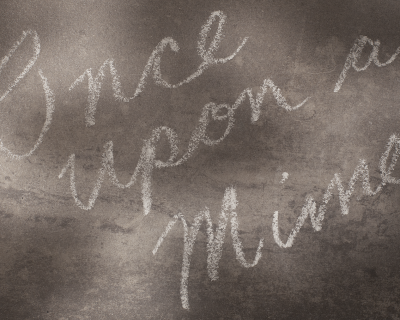 Once
upon a
Mime